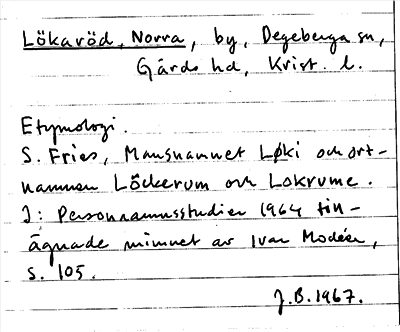 Lökaröd, Norra, by, Degeberga sn,
Gärds hd, Krist. l.
Etymologi.
S. Fries, Mansnamnet Løki och ort-
namnen Löckerum och Lokrume.
I: Personnamnsstudier 1964 till-
ägnade minnet av Ivar Modéer,
s. 105.
J.B. 1967.